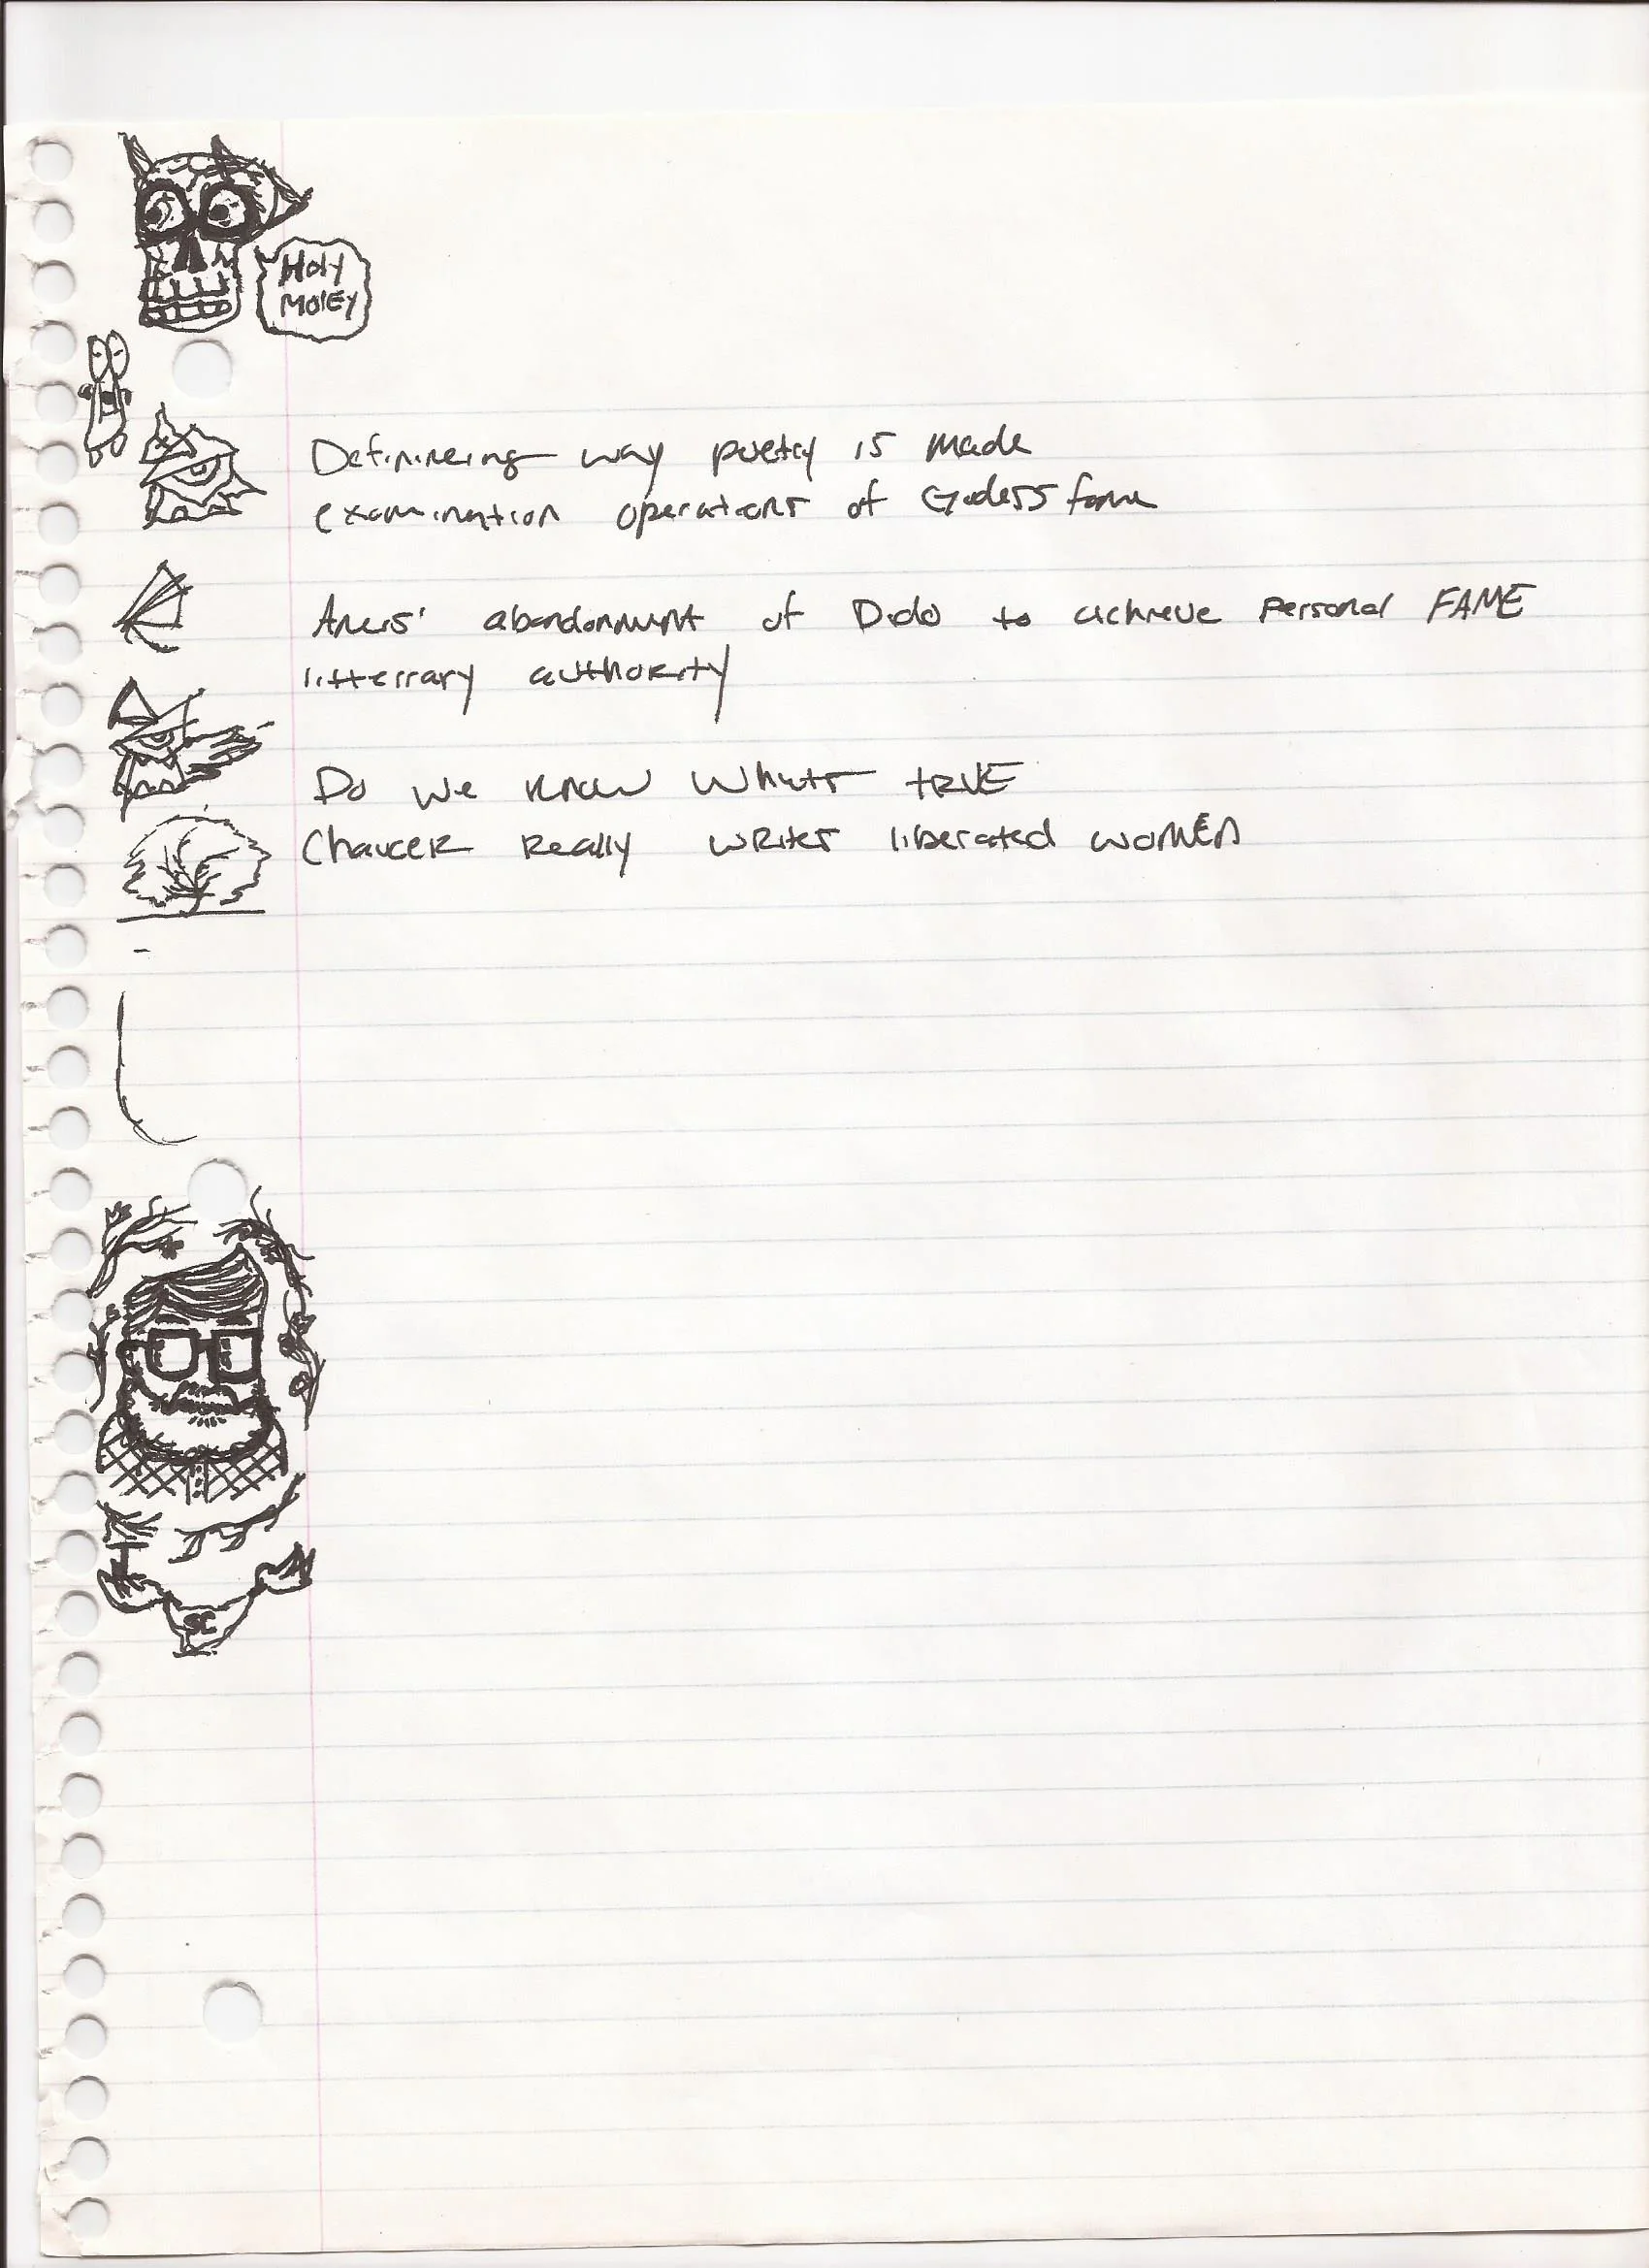 Holy
MolEy
Definineing way poetry is made
examination operations of Godess fame
Aneis' abandonment of Dido to achieve personal FAME
litterrary authority
Do we know whats tRUE
Chaucer Really writes liberated women
SC